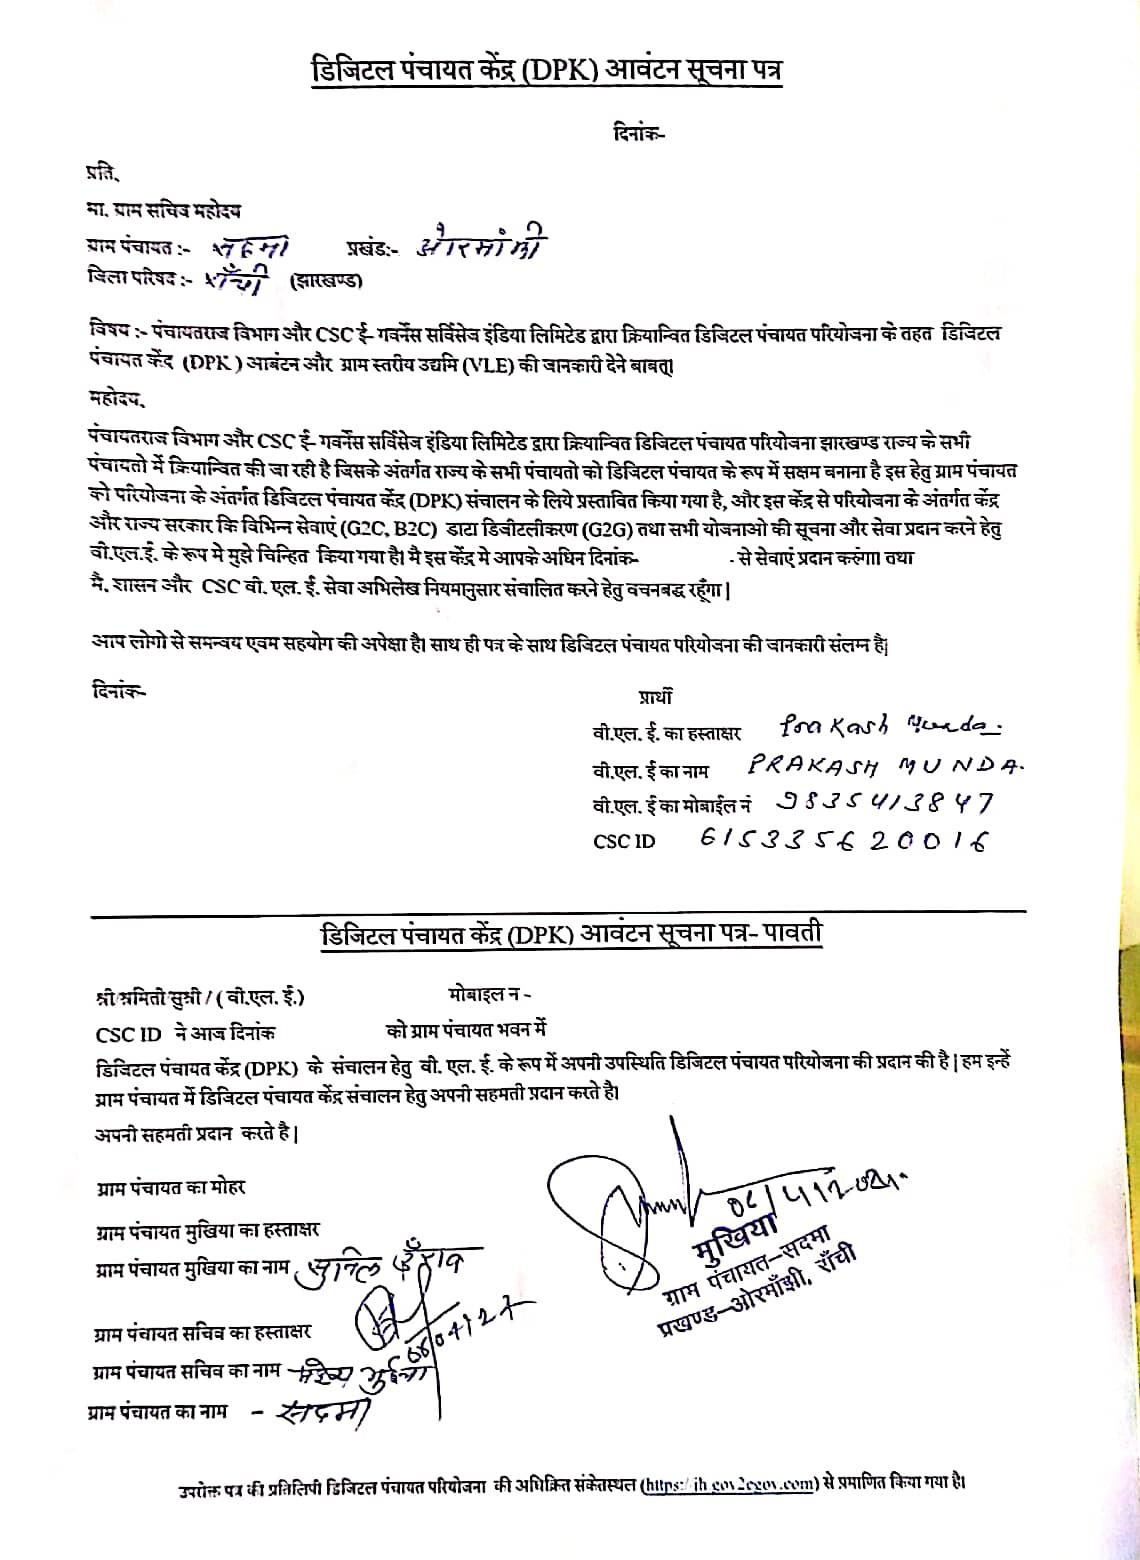 डिजिटल पंचायत केंद्र (DPK) आवंटन सूचना पत्र
दिनांक-
प्रति,
मा. ग्राम सचिव महोदय
ग्राम पंचायत :- सदमा प्रखंड:- ओरमांझी
जिला परिषद :- राँची (झारखण्ड)
विषय :- पंचायतराज विभाग और CSC ई- गवर्नेंस सर्विसेज इंडिया लिमिटेड द्वारा क्रियान्वित डिजिटल पंचायत परियोजना के तहत डिजिटल
पंचायत केंद्र (DPK ) आबंटन और ग्राम स्तरीय उद्यमि (VLE) की जानकारी देने बाबत्।
महोदय,
पंचायतराज विभाग और CSC ई- गवर्नेंस सर्विसेज इंडिया लिमिटेड द्वारा क्रियान्वित डिजिटल पंचायत परियोजना झारखण्ड राज्य के सभी
पंचायतो में क्रियान्वित की जा रही है जिसके अंतर्गत राज्य के सभी पंचायतो को डिजिटल पंचायत के रूप में सक्षम बनाना है इस हेतु ग्राम पंचायत
को परियोजना के अंतर्गत डिजिटल पंचायत केंद्र (DPK) संचालन के लिये प्रस्तावित किया गया है, और इस केंद्र से परियोजना के अंतर्गत केंद्र
और राज्य सरकार कि विभिन्न सेवाएं (G2C, B2C) डाटा डिजीटलीकरण (G2G) तथा सभी योजनाओ की सूचना और सेवा प्रदान करने हेतु
वी.एल.ई. के रूप मे मुझे चिन्हित किया गया है। मै इस केंद्र मे आपके अधिन दिनांक- - से सेवाएं प्रदान करुंगा। तथा
मै. शासन और CSC वी. एल. ई. सेवा अभिलेख नियमानुसार संचालित करने हेतु वचनबद्ध रहूँगा |
आप लोगो से समन्वय एवम सहयोग की अपेक्षा है। साथ ही पत्र के साथ डिजिटल पंचायत परियोजना की जानकारी संलग्न है|
दिनांक- प्रार्थी
वी.एल. ई. का हस्ताक्षर Prakash Munda.
वी.एल. ई का नाम PRAKASH MUNDA.
वी.एल. ई का मोबाईल नं 9835413847
CSC ID 615335620016
डिजिटल पंचायत केंद्र (DPK) आवंटन सूचना पत्र- पावती
श्री/श्रमिती/सुश्री / ( वी.एल. ई.) मोबाइल न -
CSC ID ने आज दिनांक को ग्राम पंचायत भवन में
डिजिटल पंचायत केंद्र (DPK) के संचालन हेतु वी. एल. ई. के रूप में अपनी उपस्थिति डिजिटल पंचायत परियोजना की प्रदान की है | हम इन्हें
ग्राम पंचायत में डिजिटल पंचायत केंद्र संचालन हेतु अपनी सहमती प्रदान करते है।
अपनी सहमती प्रदान करते है |
ग्राम पंचायत का मोहर
मुखिया
ग्राम पंचायत–सदमा
प्रखण्ड–ओरमाँझी, राँची
ग्राम पंचायत मुखिया का हस्ताक्षर
ग्राम पंचायत मुखिया का नाम सुनिल
ग्राम पंचायत सचिव का हस्ताक्षर
ग्राम पंचायत सचिव का नाम
ग्राम पंचायत का नाम - सदमा
उपरोक्त पत्र की प्रतिलिपी डिजिटल पंचायत परियोजना की अधिक्रित संकेतस्थल (https://jh.gov2egov.com) से प्रमाणित किया गया है।